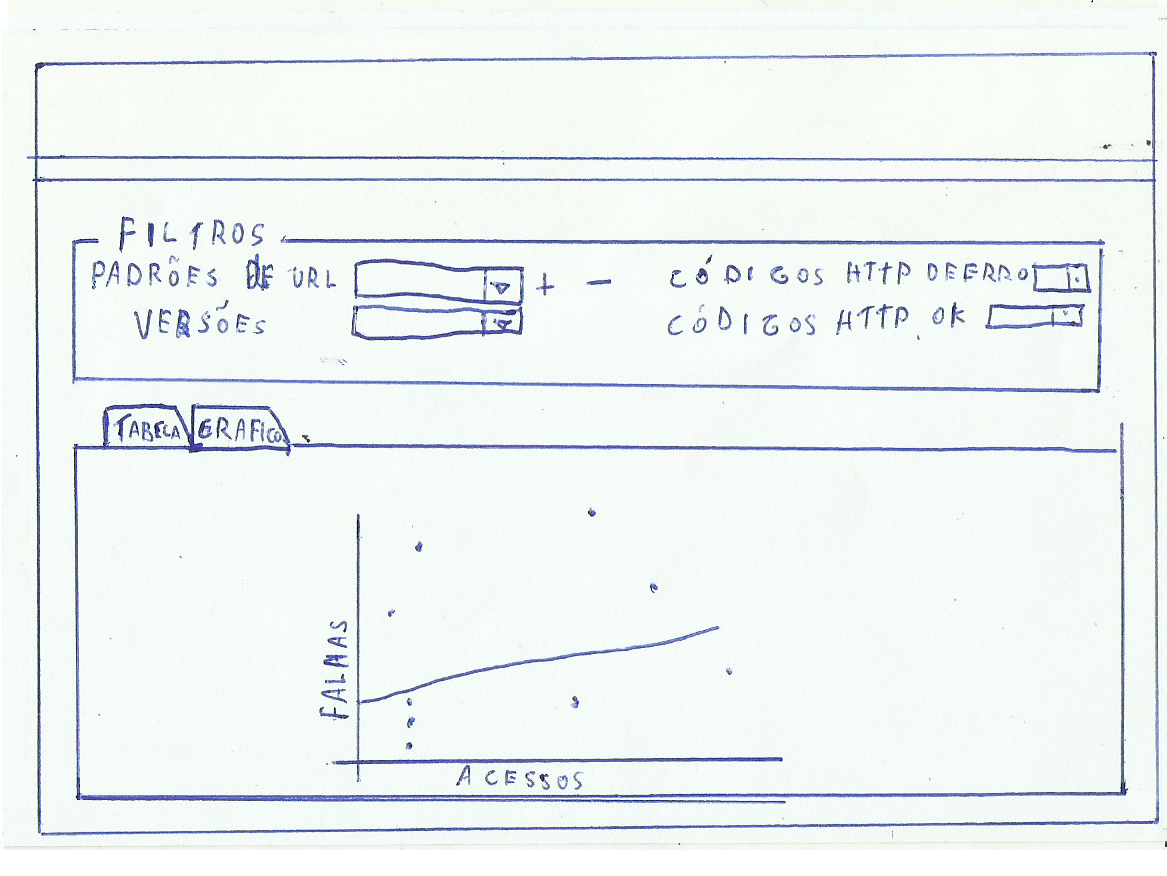 FILTROS
PADRÕES DE URL + - CÓDIGOS HTTP DE ERRO
VERSÕES CÓDIGOS HTTP OK
TABELA GRAFICO
FALHAS
ACESSOS